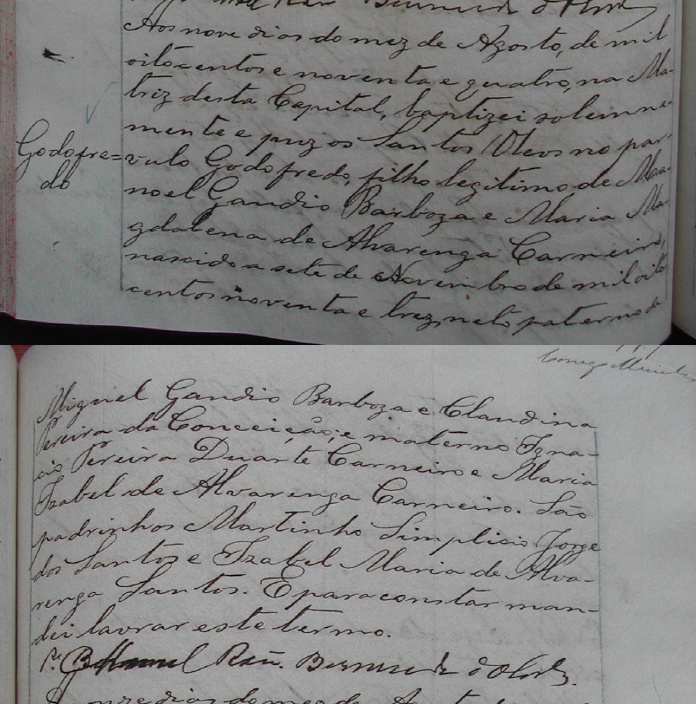 Aos nove dias do mez de Agosto, de mil
oitocentos e noventa e quatro, na Ma-
triz desta Capital, baptizei solemne-
mente e puz os Santos Oleos no par-
Godofre=
do
vulo Godofredo, filho legitimo de Ma-
noel Gandio Barboza e Maria Ma-
gdalena de Alvarenga Carneiro,
nascido a sete de Novembro de mil oito
centos noventa e trez, neto paterno de
Miguel Gandio Barboza e Claudina
Pereira da Conceição, e materno Igna-
cio Pereira Duarte Carneiro e Maria
Izabel de Alvarenga Carneiro. São
padrinhos Martinho Simplicio Jorge
dos Santos e Izabel Maria de Alva-
renga Santos. E para constar man-
dei lavrar este termo.
onze dias do mez de